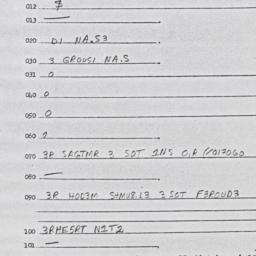 012 7
013 —
020 DI NA.S3
030 3 GROUSI NA.S
031 0
040 0
050 0
060 0
070 3R SAGTMR 3 SOT INS O.R
080 —
090 3R HOD3M 3 SOT F3ROUD3
100 3RHESRT N1T2
101 —